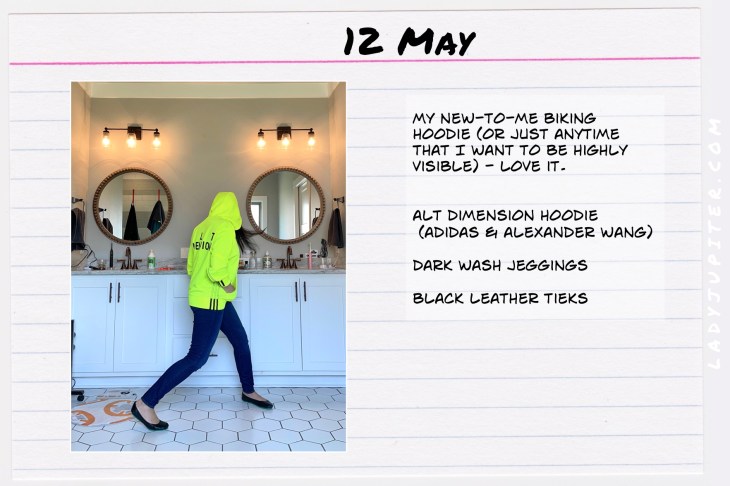 12 MAY
MY NEW-TO-ME BIKING
HOODIE (OR JUST ANYTIME
THAT I WANT TO BE HIGHLY
VISIBLE) - LOVE IT.
ALT DIMENSION HOODIE
(ADIDAS & ALEXANDER WANG)
DARK WASH JEGGINGS
BLACK LEATHER TIEKS
LADYJUPITER.COM